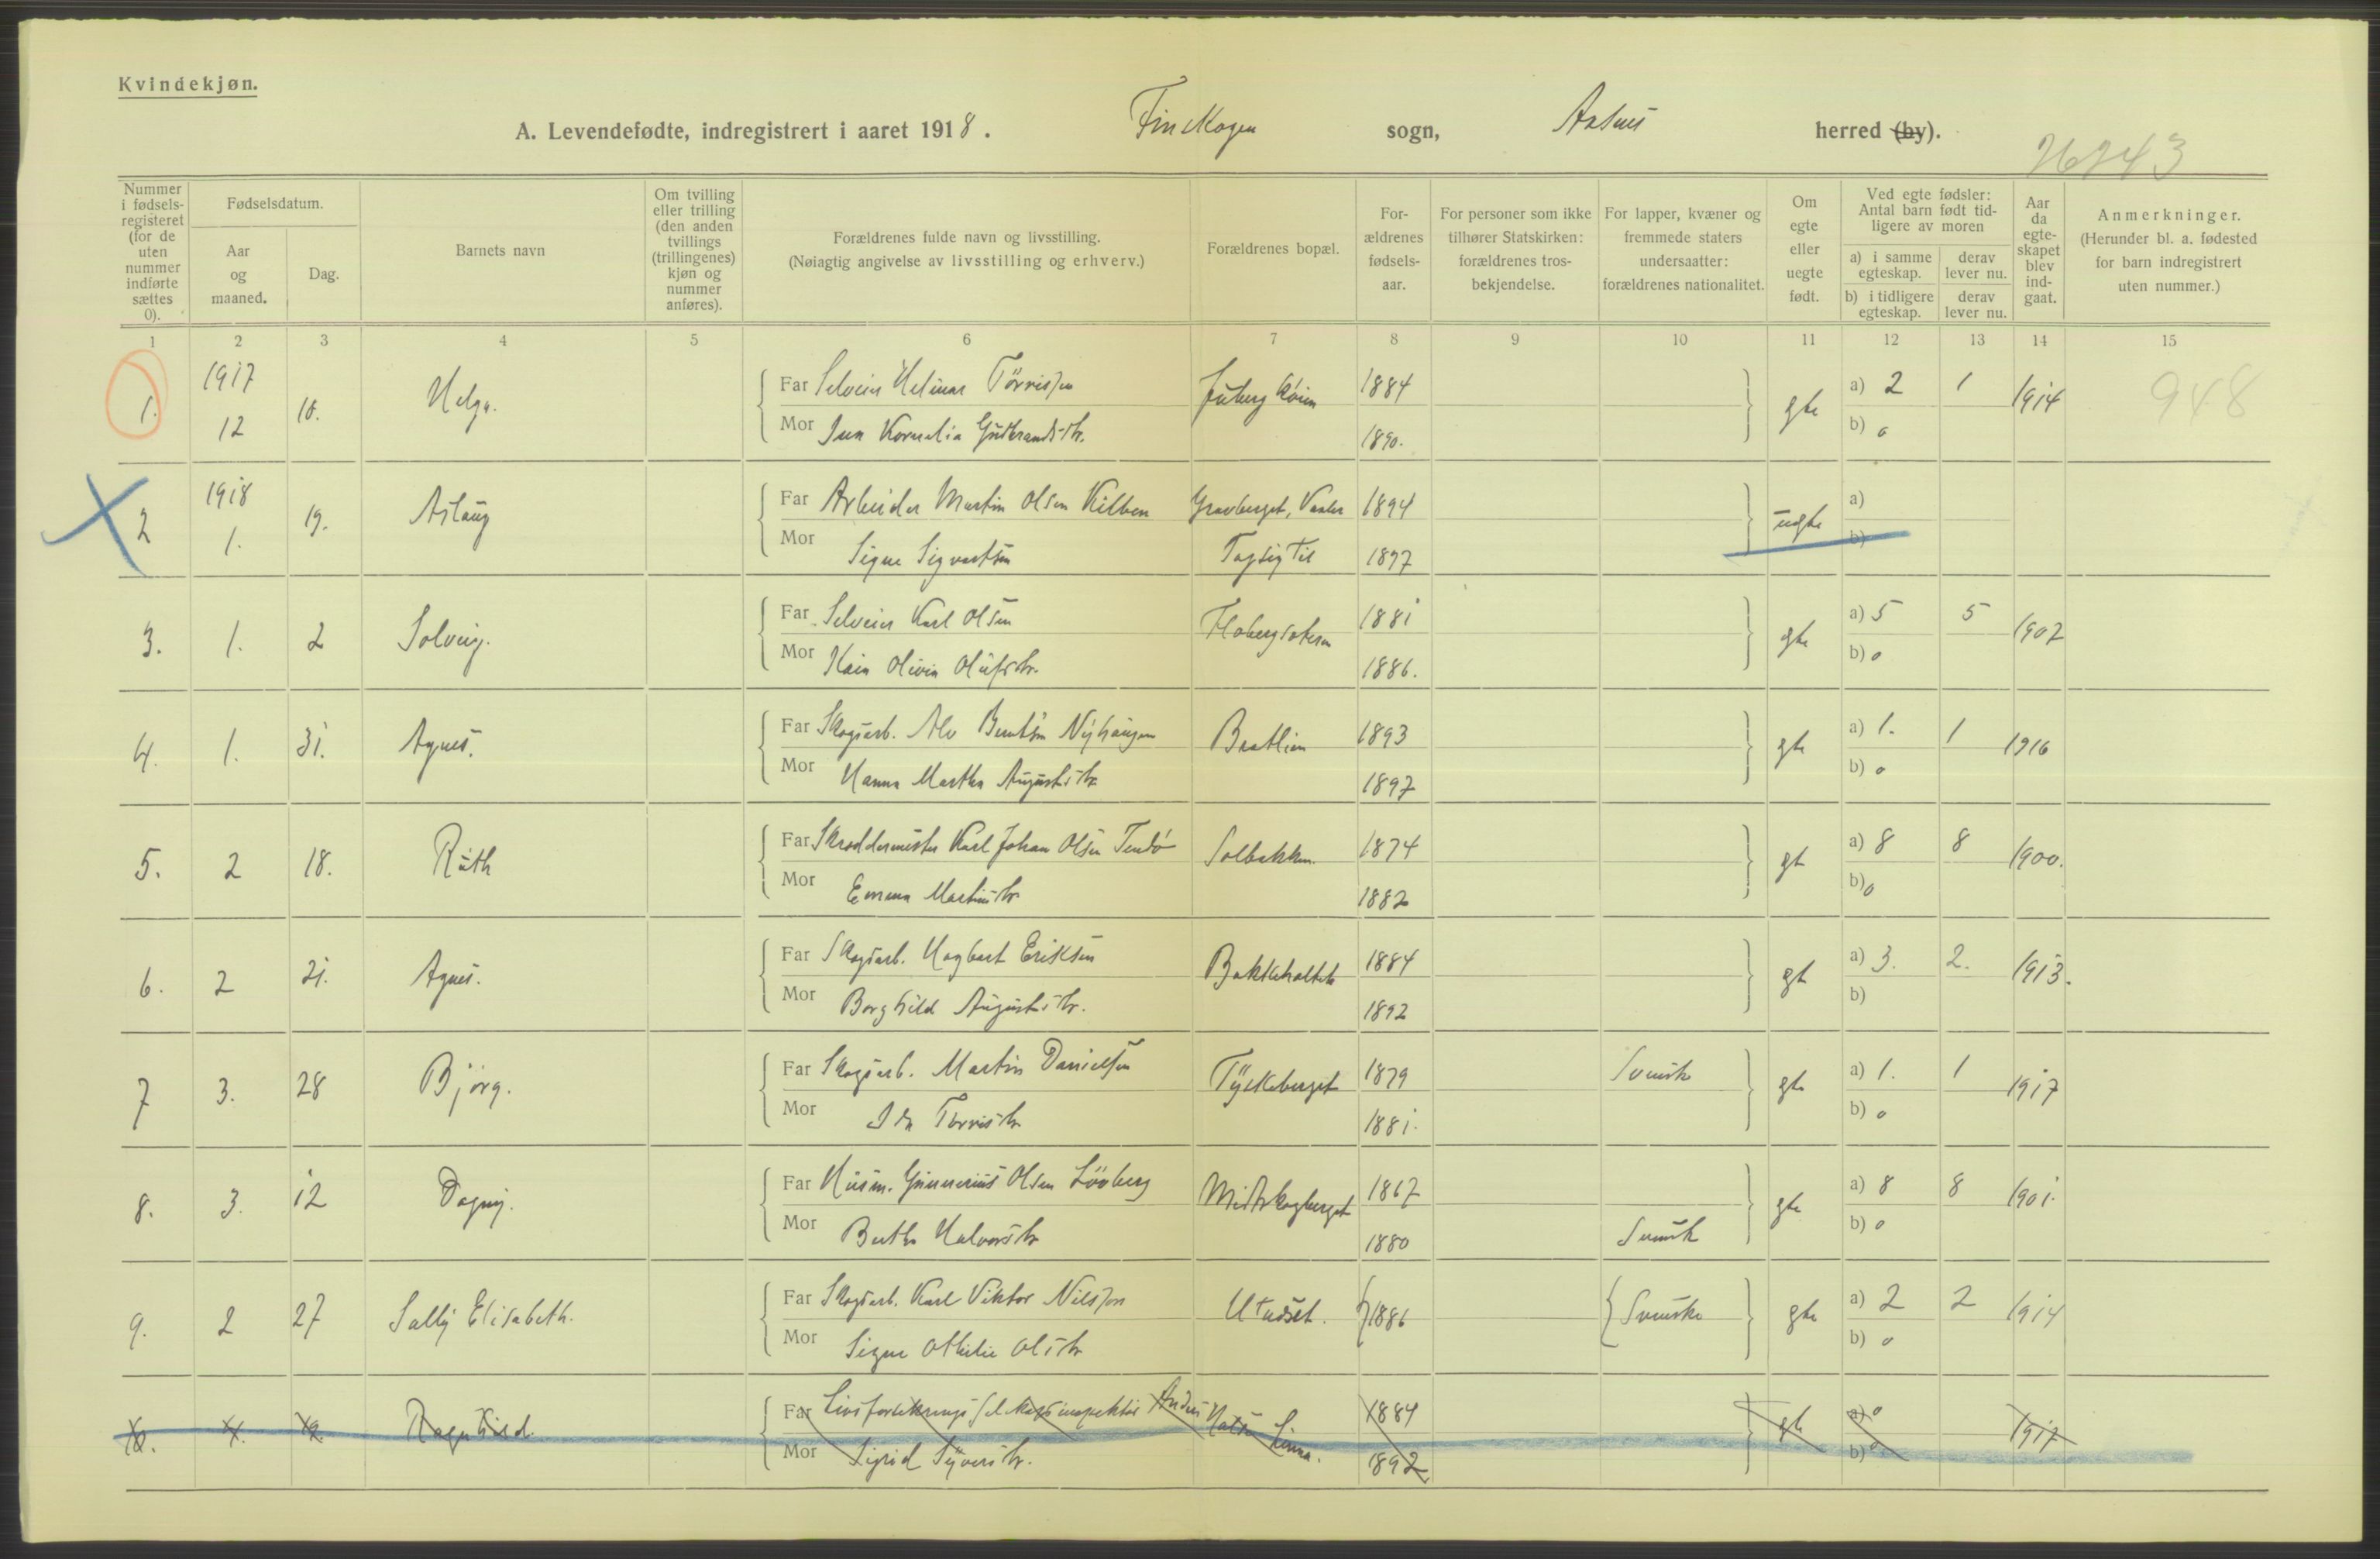 Kvindekjøn.
A. Levendefødte, indregistrert i aaret 1918. Finskogen sogn, Aasnes herred (by).
Nummer i fødsels-registeret (for de uten nummer indførte sættes 0).
Fødselsdatum.
Aar og maaned.
Dag.
Barnets navn
Om tvilling eller trilling (den anden tvillings (trillingenes) kjøn og nummer anføres).
Forældrenes fulde navn og livsstilling.
(Nøiagtig angivelse av livsstilling og erhverv.)
Forældrenes bopæl.
For-ældrenes fødsels-aar.
For personer som ikke tilhører Statskirken: forældrenes tros-bekjendelse.
For lapper, kvæner og fremmede staters undersaatter: forældrenes nationalitet.
Om egte eller uegte født.
Ved egte fødsler: Antal barn født tid-ligere av moren
a) i samme egteskap.
derav lever nu.
b) i tidligere egteskap.
derav lever nu.
Aar da egte-skapet blev ind-gaat.
Anmerkninger.
(Herunder bl. a. fødested for barn indregistrert uten nummer.)
1 2 3 4 5 6 7 8 9 10 11 12 13 14 15
1. 1917 12 Helga. Far Selveier Helmer 1884 gte a) 2 1 1914 948
Mor Kornelia Gudbrandsdtr. 1890. b) 0
2 1918 1. 19. Aslaug Far Arbeider Martin Olsen Kilben Gravberget, Vaaler 1894 uegte a)
Mor Signe Sigvartsen 1897 b)
3. 1. 2 Solveig. Far Selveier Karl Olsen 1881 gte a) 5 5 1907
Mor Olivia Olufsdtr. 1886. b) 0
4. 1. 31. Agnes. Far Skogsarb. Alv Berntsen Nyhaugen Braatlien 1893 gte a) 1. 1 1916
Mor Hanna Martha Augustsdtr. 1897 b) 0
5. 2 18. Ruth Far Skreddermester Karl Johan Olsen Solbakken. 1874 gt a) 8 8 1900.
Mor Emma Martinsdtr. 1882 b) 0
6. 2 21. Agnes. Far Skogsarb. Hagbart Eriksen 1884 gt a) 3. 2. 1913.
Mor Borghild Augustsdtr. 1892 b)
7 3. 28 Bjørg. Far Skogsarb. Martin Danielsen Tyskeberget 1879 Svensk gte a) 1. 1 1917
Mor Ida 1881. b) 0
8. 3. 12 Dagny. Far Husm. Gunnerius Olsen Løvberg Midtskogberget 1867 gte a) 8 8 1901.
Mor Berthe Halvorsdtr. 1880 Svensk b) 0
9. 2 27 Sally Elisabeth. Far Skogsarb. Karl Viktor Nilsson 1886 Svenske gte a) 2 2 1914
Mor Signe Othilie Olsdtr b) 0
10. 4. Ragnhild. Far Livsforsikringsselskapsinspektør Anders 1884 gte a) 0 1917
Mor Sigrid Syversdtr. 1892 b) 0